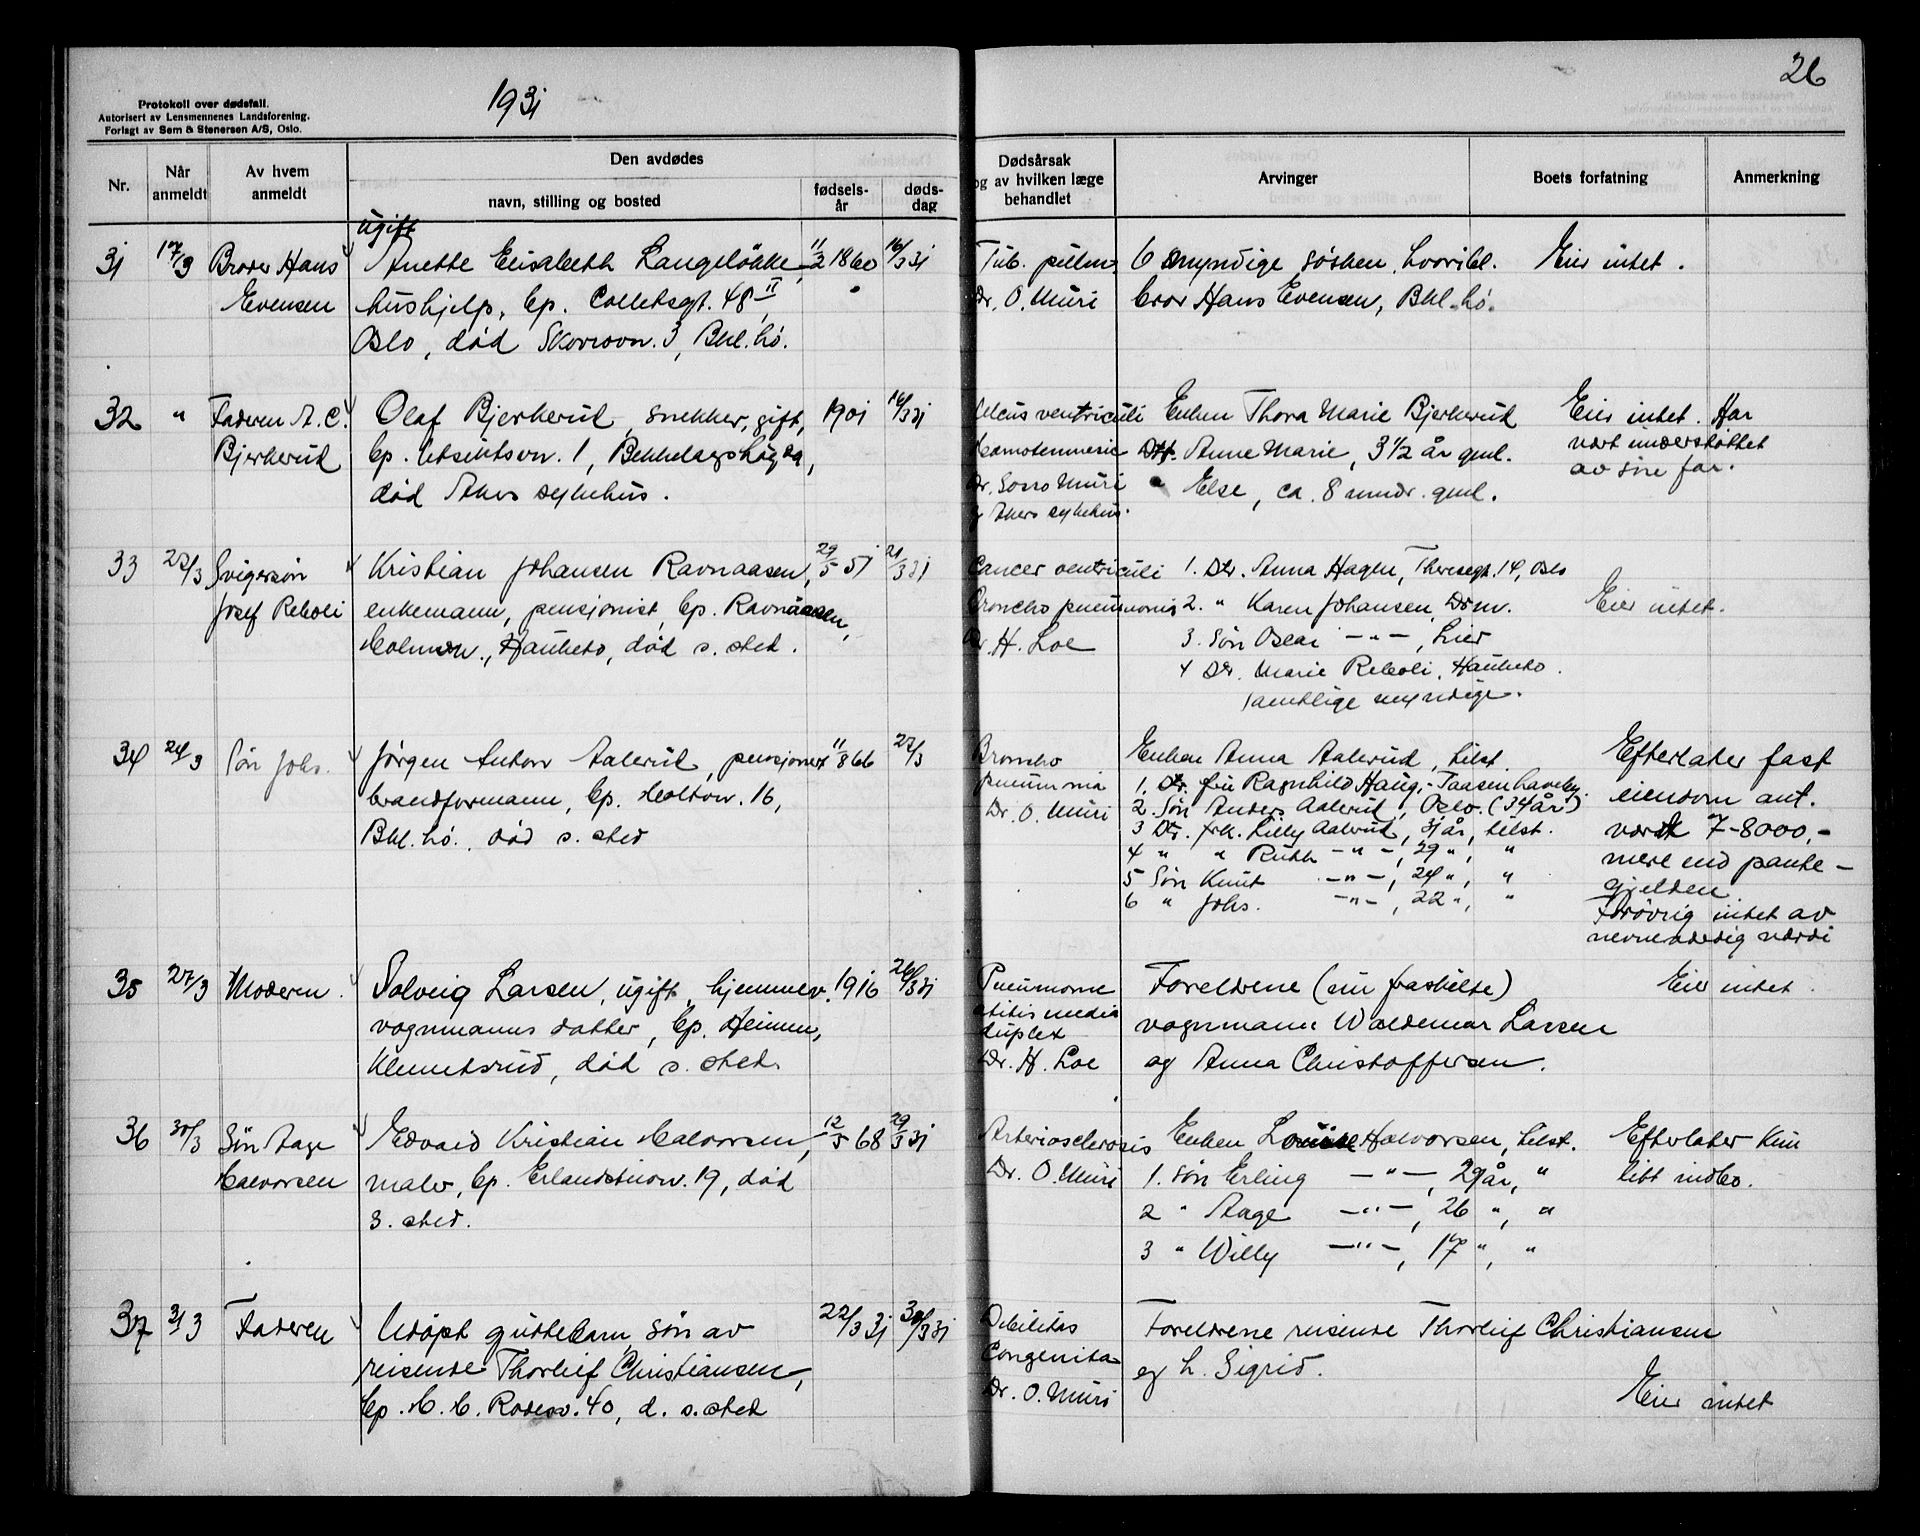 26
1931
Protokoll over dødsfall.
Autorisert av Lensmennenes Landsforening.
Forlagt av Sem & Stenersen A/S, Oslo.
Nr.
Når anmeldt
Av hvem anmeldt
Den avdødes
navn, stilling og bosted
fødsels-år
døds-dag
Dødsårsak
og av hvilken læge
behandlet
Arvinger
Boets forfatning
Anmerkning
ugift
31 17/3 Broder Hans Anette Elisabeth Langeløkke, 11/2 1860 16/3 31 Tub. pulm. 6 myndige søsken, hvoribl. Eier intet.
Evensen hushjelp, bp. Colletsgt. 48 II Dr. O. Muri bror Hans Evensen, Bkl.hø.
Oslo, død Skovsovn. 3, Bkl.hø.
32 " Faderen A. C. Olaf Bjerkerud, snekker, gift, 1901 16/3 31 Ulcus ventriculi Enken Thora Marie Bjerkerud Eier intet. Har
Bjerkerud bp. Utsiktsvn. 1, Bekkelagshøgda, Dtr. Anne Marie, 3 1/2 år gml. vært understøttet
død Akers sykehus. Dr. Muri " Else, ca. 8 mndr. gml. av sine far.
Akers sykehus.
33 22/3 Svigersøn Kristian Johansen Ravnaasen, 29/5 51 21/3 31 Cancer ventriculi 1. Dtr. Anna Hagen, Theresegt. 14, Oslo
Josef Reboli enkemann, pensjonist, bp. Ravnaasen, Broncho pneumonia 2. " Karen Johansen, Drmv. Eier intet.
Holmvn., Hauketo, død s. sted. Dr. H. Loe 3. Søn Oscar —"—, Lier
4 Dtr. Marie Reboli, Hauketo.
samtlige myndige.
34 24/3 Søn Johs. Jørgen Anton Aalerud, pensjonert 11/8 66 22/3 Broncho Enken Anna Aalerud, tilst. Efterlater fast
brandformann, bp. Holtvn. 16, pneumonia 1. Dtr. fru Ragnhild Haug, Taasen haveby. eiendom ant.
Bkl.hø., død s. sted Dr. O. Muri 2. Søn Anders Aalerud, Oslo. (34 år) verdt 7-8000,-
3 Dtr. frk. Lilly Aalerud, 31 år, tilst. mere end pante-
4 " " Ruth —"—, 29 ", " gjelden.
5 Søn Knut —"—, 24 ", " Forøvrig intet av
6 " Johs. —"—, 22 ", " nevneverdig værdi
35 27/3 Moderen. Solveig Larsen, ugift, hjemmev. 1916 26/3 31 Pneumonie Foreldrene (er fraskilte) Eier intet.
vognmanns datter, bp. Heimen, otitis media vognmann Waldemar Larsen
Klemetsrud, død s. sted. duplex og Anna Christoffersen.
Dr. H. Loe
36 30/3 Søn Aage Edvard Kristian Halvorsen, 12/5 68 29/3 31 Arteriosclerosis Enken Louise Halvorsen, tilst. Efterlater kun
Halvorsen maler, bp. Erlandstuvn. 19, død Dr. O. Muri 1. søn Erling —"—, 29 år, " litt indbo.
s. sted. 2 " Aage —"—, 26 ", "
3 " Willy —"—, 17 ", "
37 31/3 Faderen Udøpt guttebarn, søn av 22/3 31 30/3 31 Debilitas Foreldrene reisende Thorleif Christiansen
reisende Thorleif Christiansen, Congenita og h. Sigrid.
bp. H. H. Rodesv. 40, d. s. sted Dr. O. Muri Eier intet